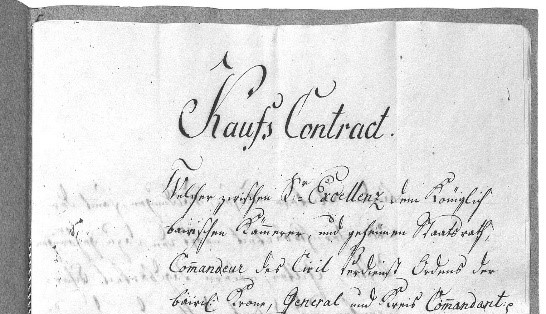 Kaufs Contract.
Welcher zwischen Sr Excellenz dem Königlich
bairischen Kämerer und geheimen Staatsrath,
Comandeur des Civil Verdienst Ordens der
bairil Krone, General und Kreis Comandant